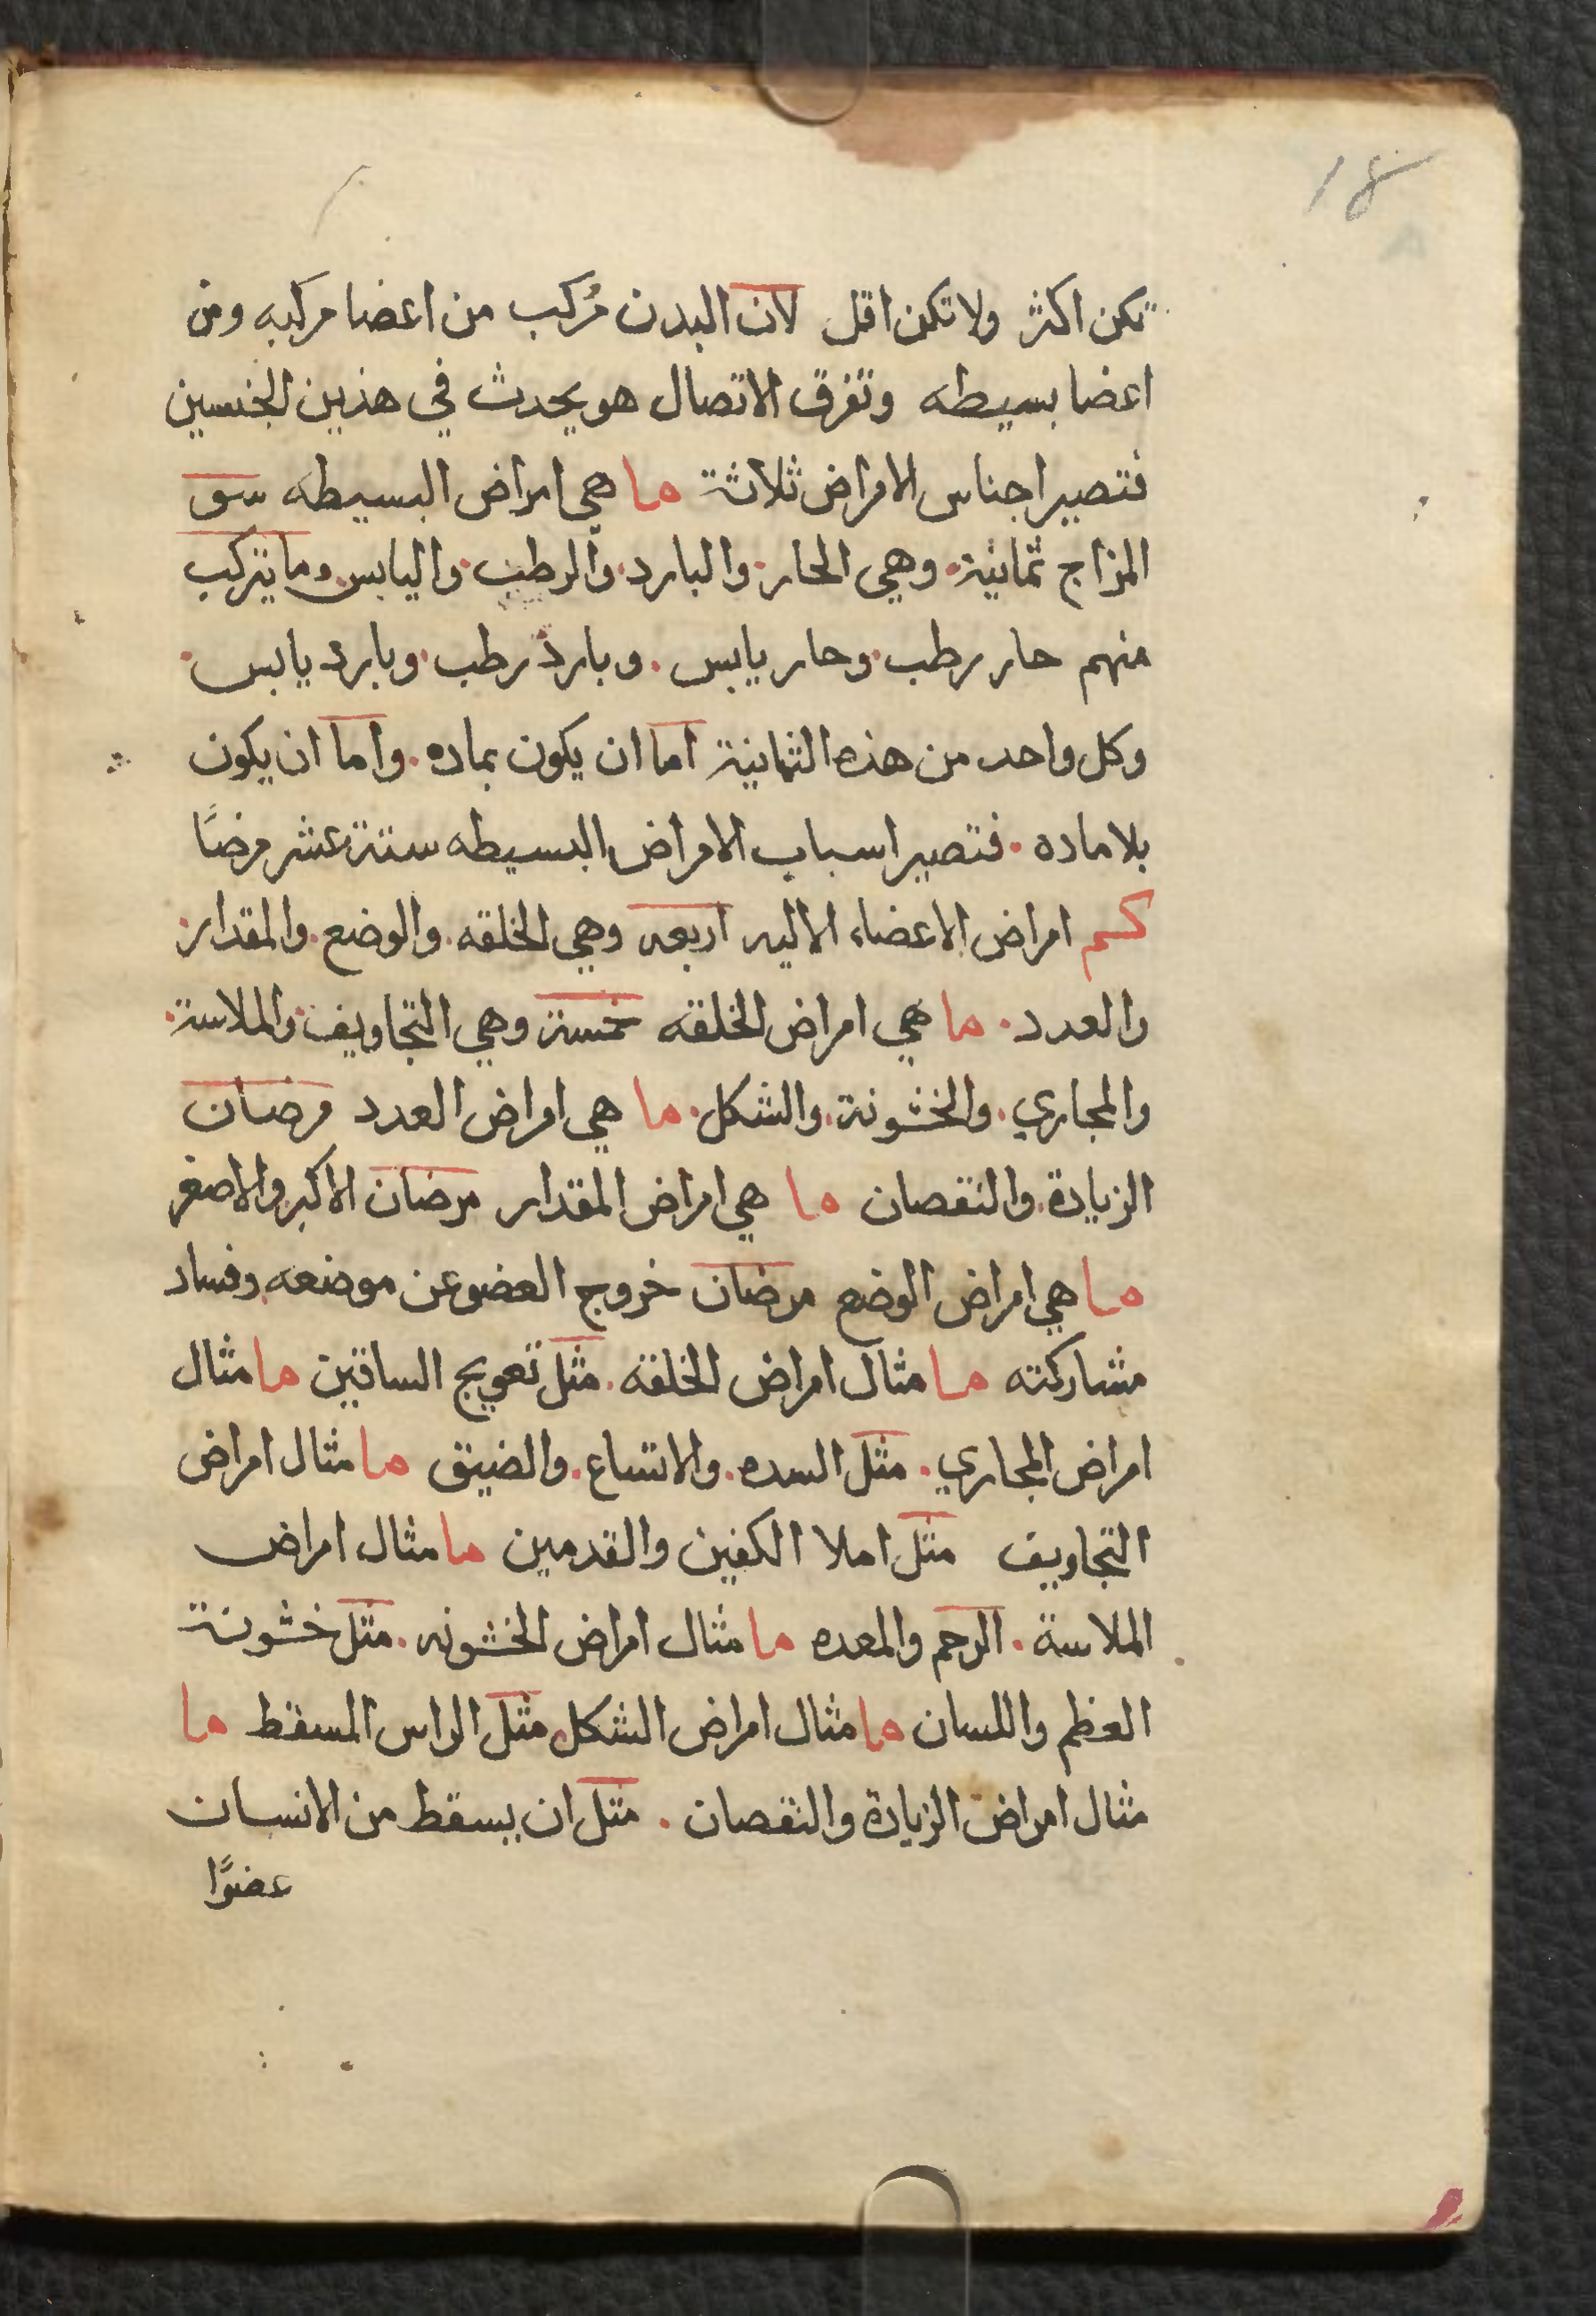 18
تكن اكثر ولا تكن اقل لان البدن مُركب من اعضا مركبه ومن
اعضا بسيطه وتفرق الاتصال هو يحدث في هذين الجنسين
فتصير اجناس الامراض ثلاثة ما هي امراض البسيطه سو
المزاج ثمانية. وهي الحار. والبارد. والرطب. واليابس. وما يتركب
منهم حار رطب. وحار يابس. وبارد رطب. وبارد يابس.
وكل واحد من هذه الثمانية اما ان يكون بماده. واما ان يكون
بلا ماده. فتصير اسباب الامراض البسيطه ستة عشر مرضًا
كم امراض الاعضاء الاليه اربعه وهي الخلقه. والوضع. والمقدار.
والعدد. ما هي امراض الخلقه خمسة وهي التجاويف. والملاسة.
والمجاري. والخشونة. والشكل. ما هي امراض العدد مرضان
الزيادة. والنقصان ما هي امراض المقدار مرضان الاكبر والاصغر
ما هي امراض الوضع مرضان خروج العضو عن موضعه. وفساد
مشاركته ما مثال امراض الخلقه. مثل تعويج الساقين ما مثال
امراض المجاري. مثل السده. والاتساع. والضيق ما مثال امراض
التجاويف مثل املا الكفين والقدمين ما مثال امراض
الملاسة. الرحم والمعده ما مثال امراض الخشونه. مثل خشونة
العظم واللسان ما مثال امراض الشكل مثل الراس المسقط ما
مثال امراض الزيادة والنقصان. مثل ان يسقط من الانسان
عضوًا